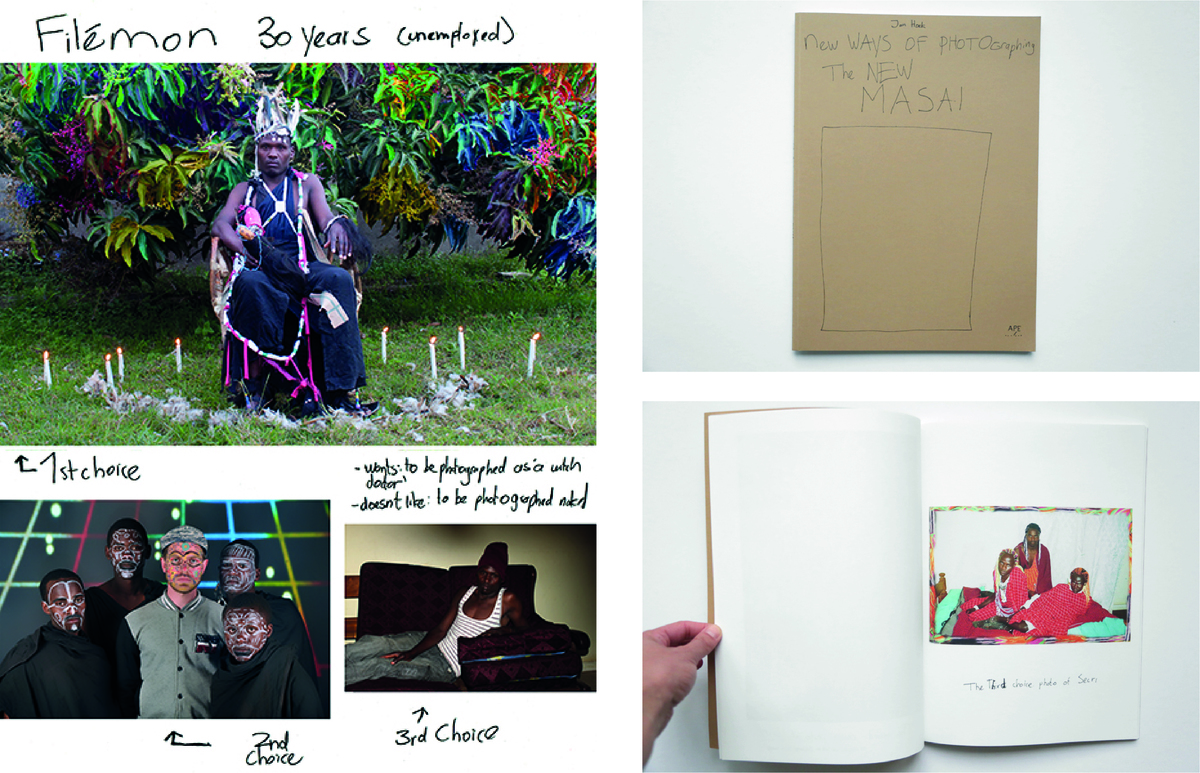 Filémon 30 years (unemployed)
1st choice
- wants: to be photographed as a witch
doctor'
- doesn't like: to be photographed naked
2nd
Choice
3rd Choice
Jan Hoek
New WAYS OF PHOTOgraphing
The NEW
MASAI
APE
The Third choice photo of Seuri